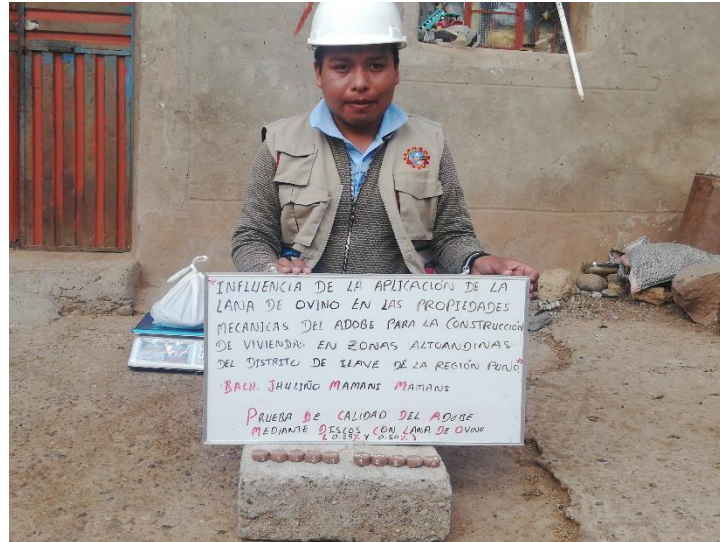 "INFLUENCIA DE LA APLICACIÓN DE LA
LANA DE OVINO EN LAS PROPIEDADES
MECANICAS DEL ADOBE PARA LA CONSTRUCCIÓN
DE VIVIENDAS EN ZONAS ALTOANDINAS
DEL DISTRITO DE ILAVE DE LA REGIÓN PUNO"
BACH. JHULIÑO MAMANI MAMANI
PRUEBA DE CALIDAD DEL ADOBE
MEDIANTE DISCOS CON LANA DE OVINO
(0.25% Y 0.50%)